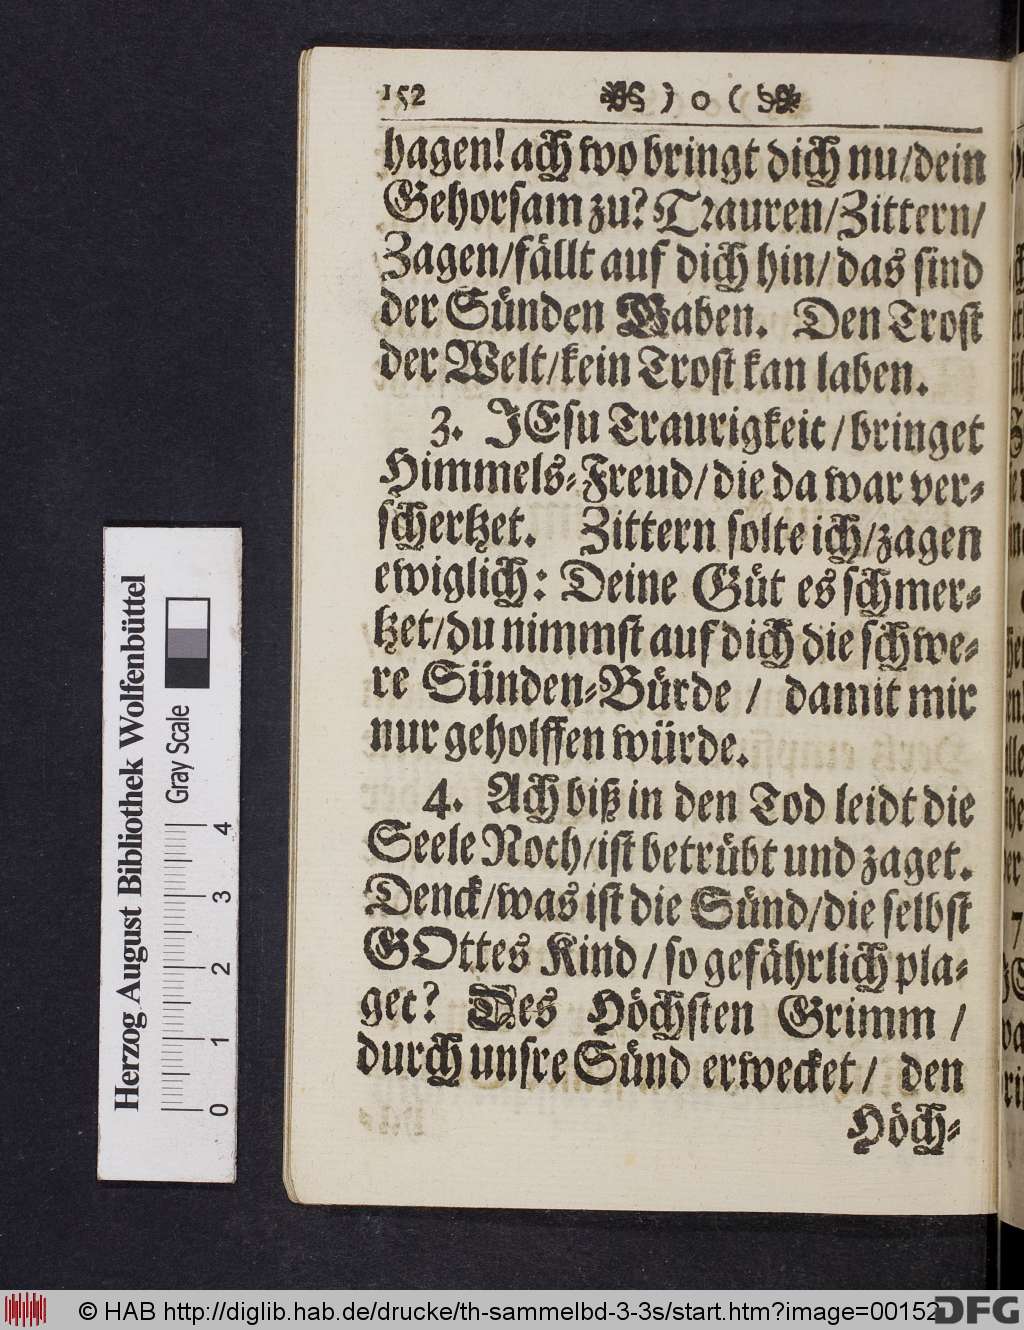 152 ) o (
hagen! ach wo bringt dich nu/dein
Gehorsam zu? Trauren/Zittern/
Zagen/fällt auf dich hin/das sind
der Sünden Gaben. Den Trost
der Welt/kein Trost kan laben.
3. JEsu Traurigkeit/bringet
Himmels-Freud/die da war ver-
schertzet. Zittern solte ich/zagen
ewiglich: Deine Güt es schmer-
tzet/du nimmst auf dich die schwe-
re Sünden-Bürde / damit mir
nur geholffen würde.
4. Ach biß in den Tod leidt die
Seele Noth/ist betrübt und zaget.
Denck/was ist die Sünd/die selbst
GOttes Kind/so gefährlich pla-
get? Des Höchsten Grimm /
durch unsre Sünd erwecket/ den
Höch-
Herzog August Bibliothek Wolfenbüttel
Gray Scale
0 1 2 3 4
© HAB http://diglib.hab.de/drucke/th-sammelbd-3-3s/start.htm?image=00152
DFG